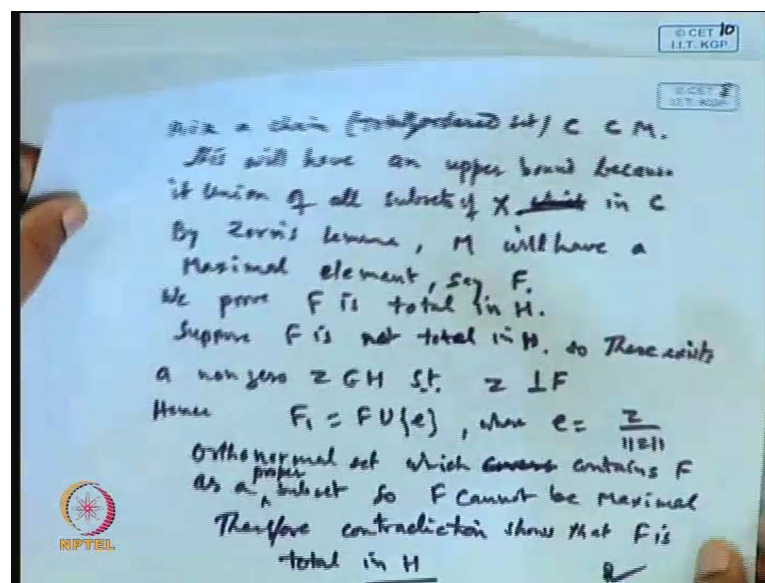 © CET 10
I.I.T. KGP
© CET
I.I.T. KGP
a chain (totally ordered set) C ⊂ M.
This will have an upper bound because
it Union of all subsets of X in C
By Zorn's lemma, M will have a
Maximal element, say F.
We prove F is total in H.
Suppose F is not total in H. so There exists
a non zero z ∈ H s.t. z ⊥ F
Hence F₁ = F ∪ {e}, where e = z / ||z||
Orthonormal set which contains F
as a proper subset so F cannot be Maximal
Therefore contradiction shows that F is
total in H
NPTEL